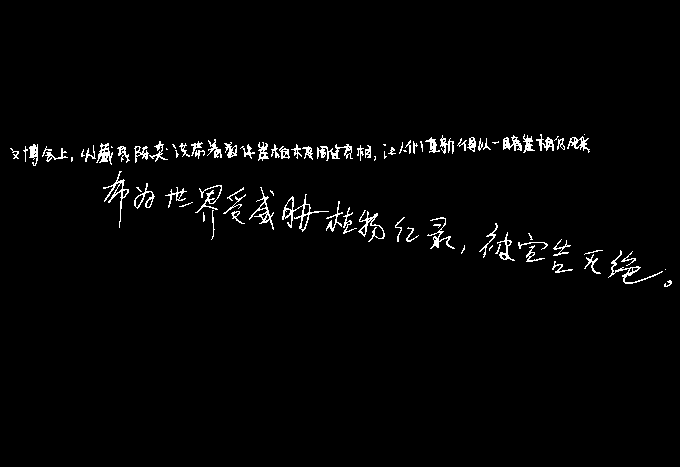 文博会上，收藏家陈奕洪带着整体崖柏木屏风位亮相，让人们重新得以一睹崖柏的风采
布为世界受威胁植物红录，被宣告灭绝。